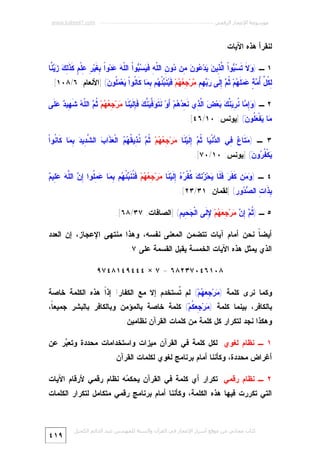 www.kaheel7.com موسوعة الإعجاز الرقمي
لنقرأ هذه الآيات
١ ــ (وَلَا تَسُبُّوا الَّذِينَ يَدْعُونَ مِن دُونِ اللَّهِ فَيَسُبُّوا اللَّهَ عَدْوًا بِغَيْرِ عِلْمٍ كَذَلِكَ زَيَّنَّا
لِكُلِّ أُمَّةٍ عَمَلَهُمْ ثُمَّ إِلَى رَبِّهِم مَّرْجِعُهُمْ فَيُنَبِّئُهُم بِمَا كَانُوا يَعْمَلُونَ) [الأنعام ١٠٨/٦]
٢ ــ (وَإِمَّا نُرِيَنَّكَ بَعْضَ الَّذِي نَعِدُهُمْ أَوْ نَتَوَفَّيَنَّكَ فَإِلَيْنَا مَرْجِعُهُمْ ثُمَّ اللَّهُ شَهِيدٌ عَلَى
مَا يَفْعَلُونَ) [يونس ٤٦/١٠]
٣ ــ (مَتَاعٌ فِي الدُّنْيَا ثُمَّ إِلَيْنَا مَرْجِعُهُمْ ثُمَّ نُذِيقُهُمُ الْعَذَابَ الشَّدِيدَ بِمَا كَانُوا
يَكْفُرُونَ) [يونس ٧٠/١٠]
٤ ــ (وَمَن كَفَرَ فَلَا يَحْزُنكَ كُفْرُهُ إِلَيْنَا مَرْجِعُهُمْ فَنُنَبِّئُهُم بِمَا عَمِلُوا إِنَّ اللَّهَ عَلِيمٌ
بِذَاتِ الصُّدُورِ) [لقمان ٢٣/٣١]
٥ ــ (ثُمَّ إِنَّ مَرْجِعَهُمْ لَإِلَى الْجَحِيمِ) [الصافات ٦٨/٣٧]
أيضاً نحن أمام آيات تتضمن المعنى نفسه، وهذا منتهى الإعجاز، إن العدد
الذي يمثل هذه الآيات الخمسة يقبل القسمة على ٧
٦٨٢٣٧٠٤٦١٠٨ = ٧ × ٩٧٤٨١٤٩٤٤٤
وكما نرى كلمة (مَرْجِعُهُمْ) لم تُستخدم إلا مع الكفار! إذاً هذه الكلمة خاصة
بالكافر، بينما كلمة (مَرْجِعُكُمْ) كلمة خاصة بالمؤمن وبالكافر بالبشر جميعاً،
وهكذا نجد لتكرار كل كلمة من كلمات القرآن نظامين
١ ــ نظام لغوي لكل كلمة في القرآن ميزات واستخدامات محددة وتعبِّر عن
أغراض محددة، وكأننا أمام برنامج لغوي لكلمات القرآن
٢ ــ نظام رقمي تكرار أي كلمة في القرآن يحكمه نظام رقمي لأرقام الآيات
التي تكررت فيها هذه الكلمة، وكأننا أمام برنامج رقمي متكامل لتكرار الكلمات
كتاب مجاني من موقع أسرار الإعجاز في القرآن والسنة للمهندس عبد الدائم الكحيل
٤١٩